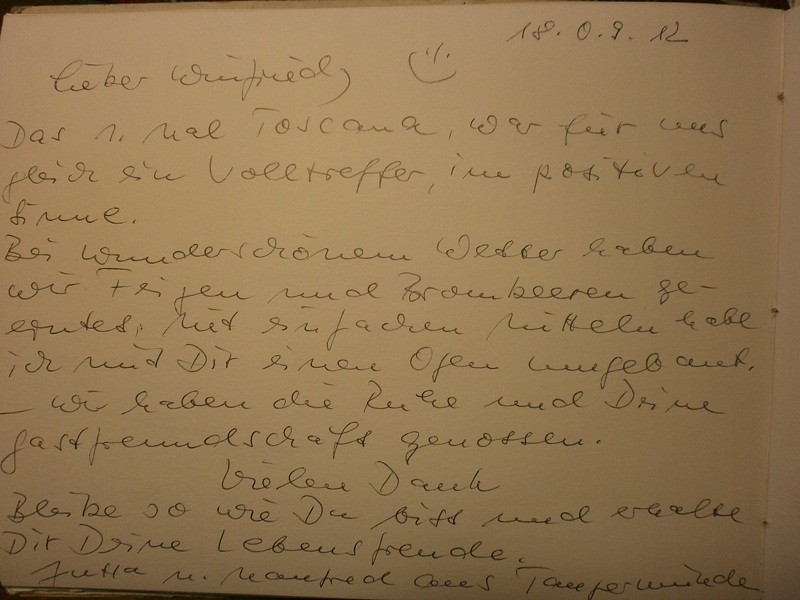 18.0.9.12
Lieber Winfried,
Das 1. Mal Toscana, war für uns
gleich ein Volltreffer, im positiven
Sinne.
Bei wunderschönem Wetter haben
wir Feigen und Brombeeren ge-
erntet, mit einfachen Mitteln habe
ich mit Dir einen Ofen umgebaut.
– wir haben die Ruhe und Deine
Gastfreundschaft genossen.
Vielen Dank
Bleibe so wie Du bist und erhalte
Dir Deine Lebensfreude.
Jutta u. Manfred aus Tangermünde